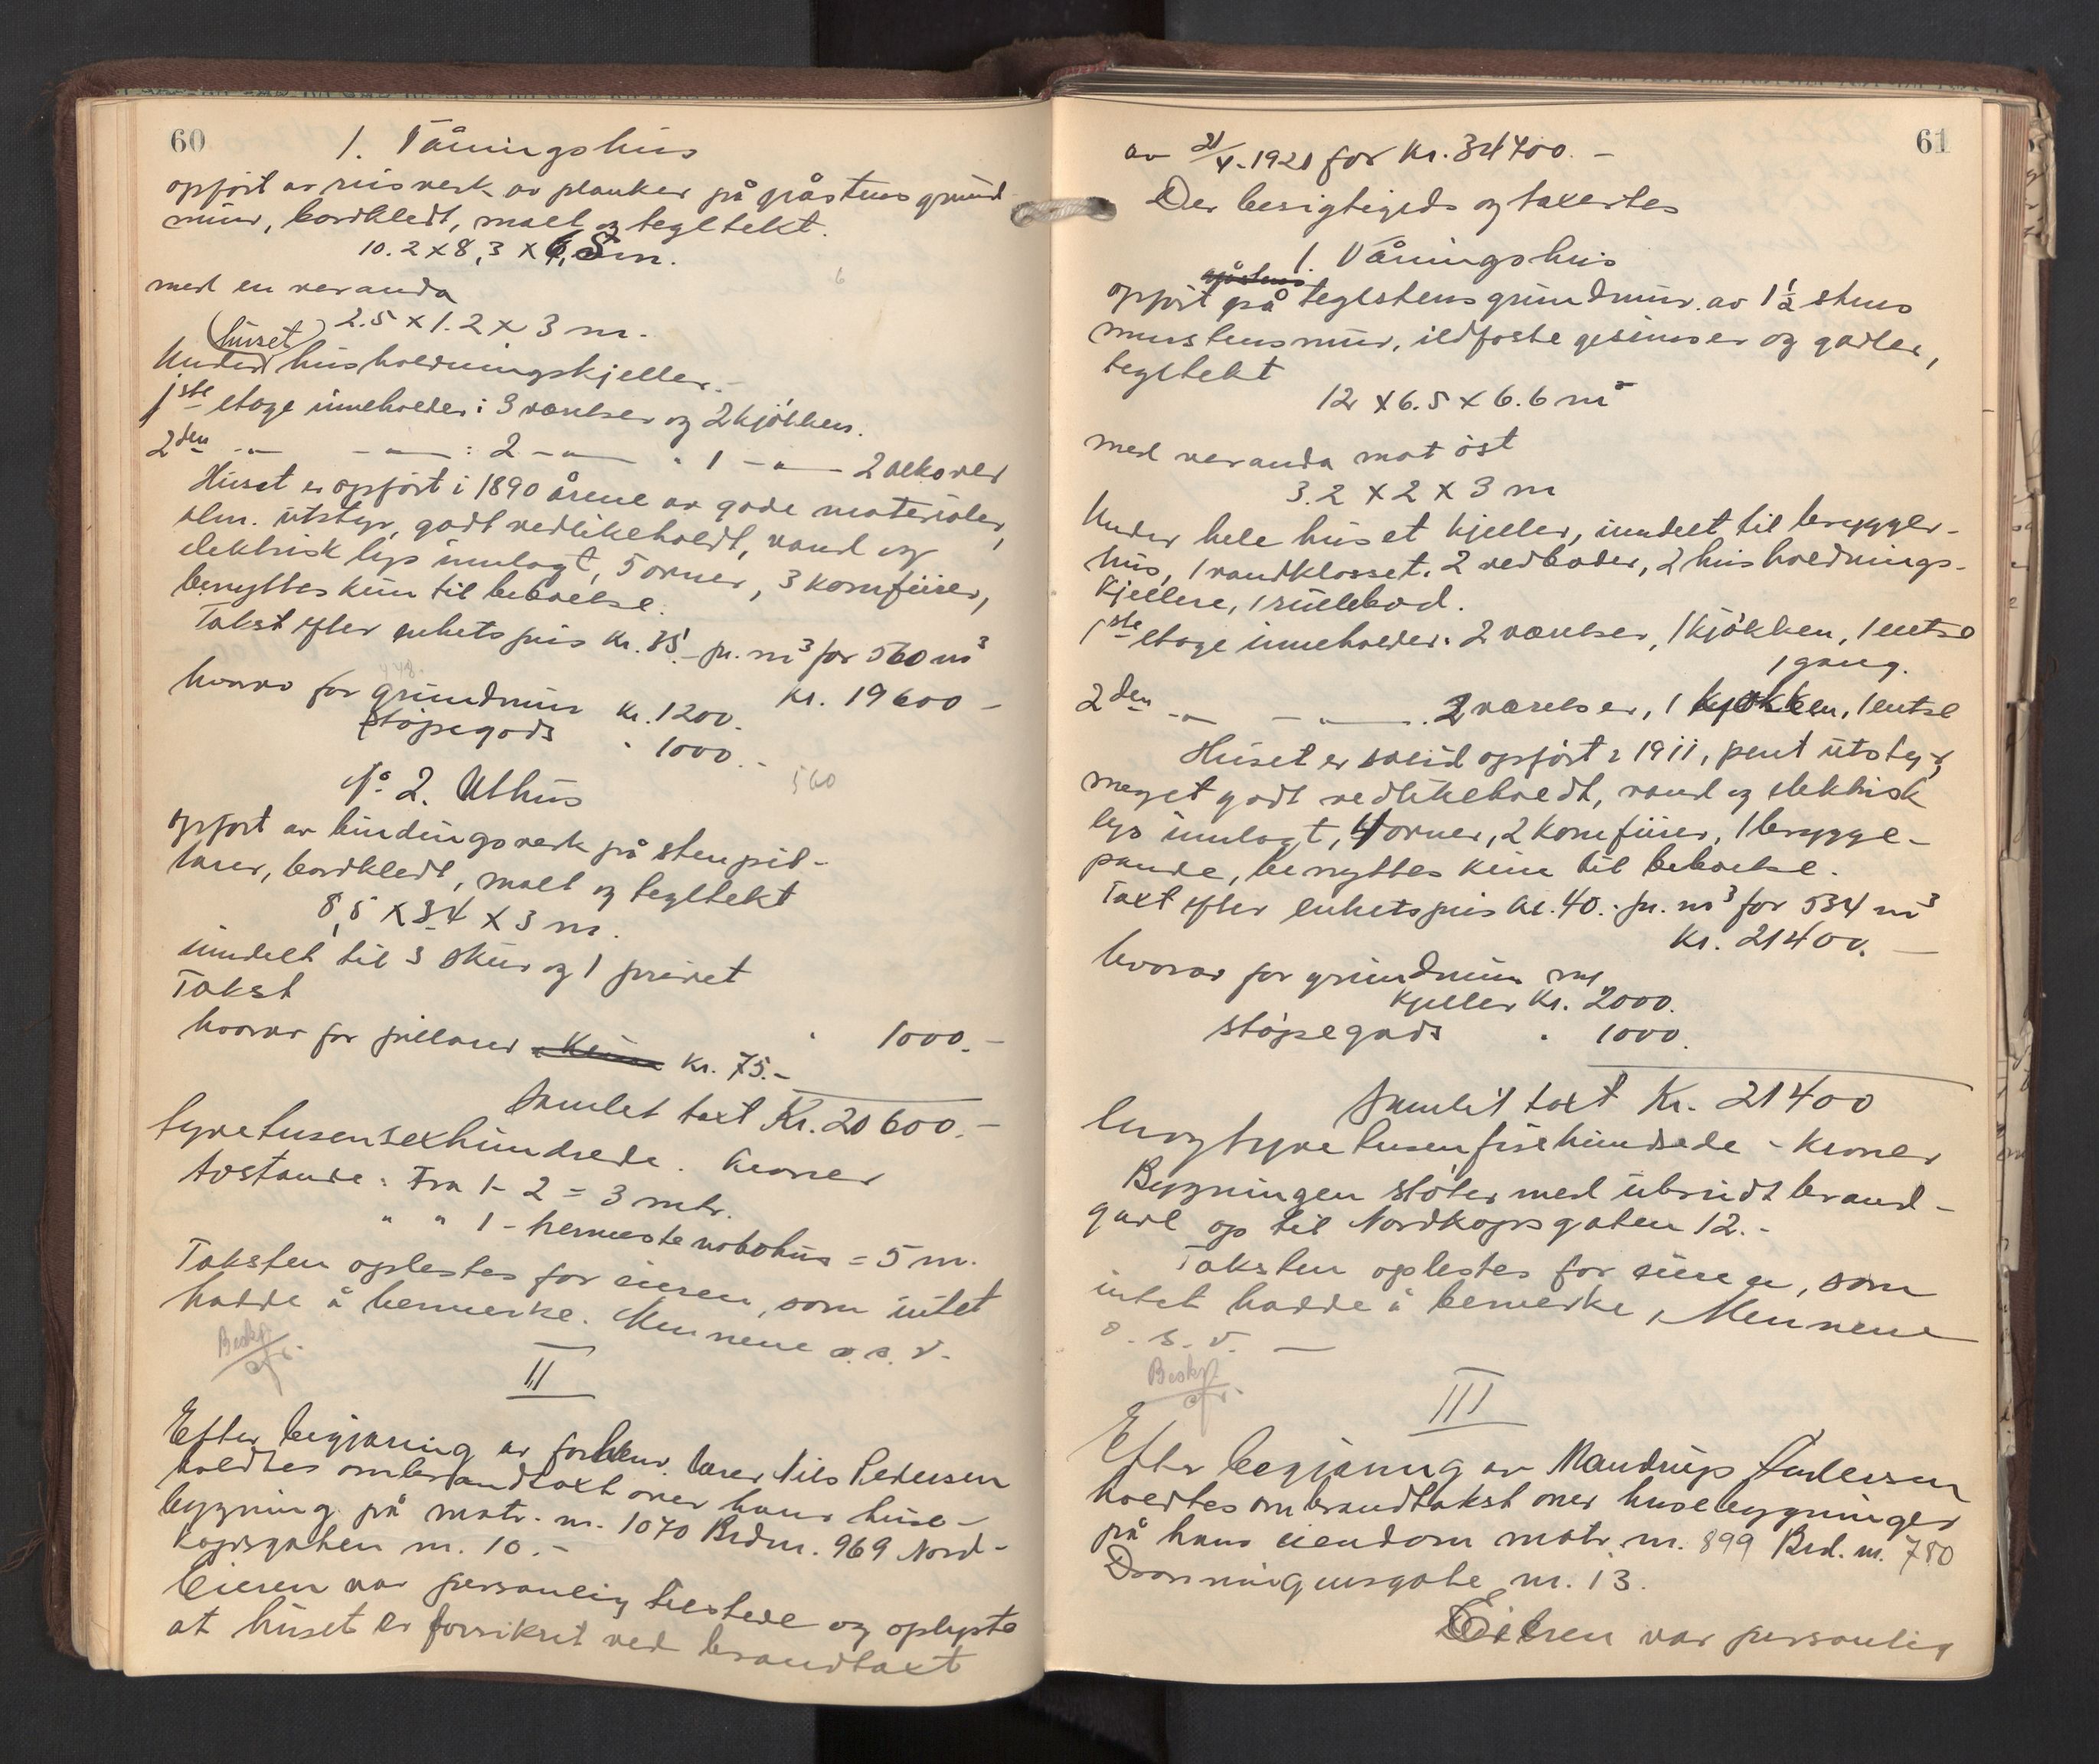 60
1. Våningshus
opført av reisverk av planker på gråstens grund-
mur, bordkledt, malt og tegltekt.
10.2 x 8,3 x 6,5 m.
med en veranda
2.5 x 1.2 x 3 m.
(huset)
Under husholdningskjeller.-
1ste etage inneholder: 3 værelser og 2 kjökken.
2den -"- -"- : 2 -"- " 1 -"- 2 alkover
Huset er opfört i 1890 årene av gode materialer,
alm. utstyr, godt vedlikeholdt, vand og
elektrisk lys innlagt, 5 ovner, 3 komfurer,
benyttes kun til beboelse.
Takst efter enhetspris kr. 35.- pr. m3 for 560 m3
kr. 19600 -
448.
hvorav for grundmur kr. 1200.
støpegods " 1000.-
560
No 2. Uthus
opfört av bindingsverk på stenpil-
larer, bordkledt, malt og tegltekt
8,5 x 3.4 x 3 m.
inndelt til 3 skur og 1 privet
Takst " 1000.-
hvorav for pillarer kr. 75.-
Samlet taxt Kr. 20600.-
tyvetusensexhundrede. kroner
Avstande: Fra 1 - 2 = 3 mtr.
" " 1 - nermeste nabohus = 5 m.
Taksten oplestes for eieren, som intet
hadde å bemerke. Mennene o.s.v.
Beskr.
II
Efter begjæring av forhenv. lærer Nils Pedersen
holdtes ombrandtaxt over hans huse-
bygning på matr. nr. 1070 Brdnr. 969 Nord-
kapsgaten nr. 10.-
Eieren var personlig tilstede og oplyste
at huset er forsikret ved brandtaxt
61
av 21/4-1921 for kr. 34400.-
Der besigtigeds og taxertes
1. Våningshus
gråstens
opfört på teglstens grundmur av 1½ stens
murstensmur, ildfaste gesimser og gavler,
tegltekt
12 x 6.5 x 6.6 m
med veranda mot öst
3.2 x 2 x 3 m
Under hele huset kjeller, inndelt til brygger-
hus, 1 vandklosset, 2 vedboder, 2 husholdnings-
kjellere, 1 rullebod.
1ste etage inneholder: 2 værelser, 1 kjökken, 1 entré
1 gang.
2den -"- -"- 2 værelser, 1 kjøkken, 1 entré
Huset er solid opfört i 1911, pent utstyr,
meget godt vedlikeholdt, vand og elektrisk
lys innlagt, 4 ovner, 2 komfurer, 1 brygge-
pande, benyttes kun til beboelse.
Taxt efter enhetspris kr. 40.- pr. m3 for 534 m3
Kr. 21400.-
hvorav for grundmur m/
kjeller Kr. 2000.
støpegods " 1000.
Samlet taxt Kr. 21400
Enogtyvetusenfirehundrede - kroner
Bygningen stöter med ubrudt brand-
gavl op til Nordkapsgaten 12.-
Taksten oplestes for eieren, som
intet hadde å bemerke, Mennene
o.s.v. -
Beskr.
III
Efter begjæring av Mandrup Andersen
holdtes ombrandtakst over husebygninger
på hans eiendom matr. nr. 899 Brd. nr. 780
Dronningensgate nr. 13.
Eieren var personlig